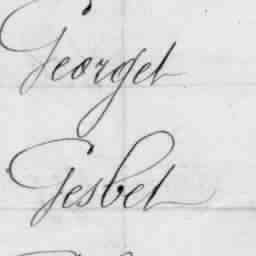 Georget
Gesbet